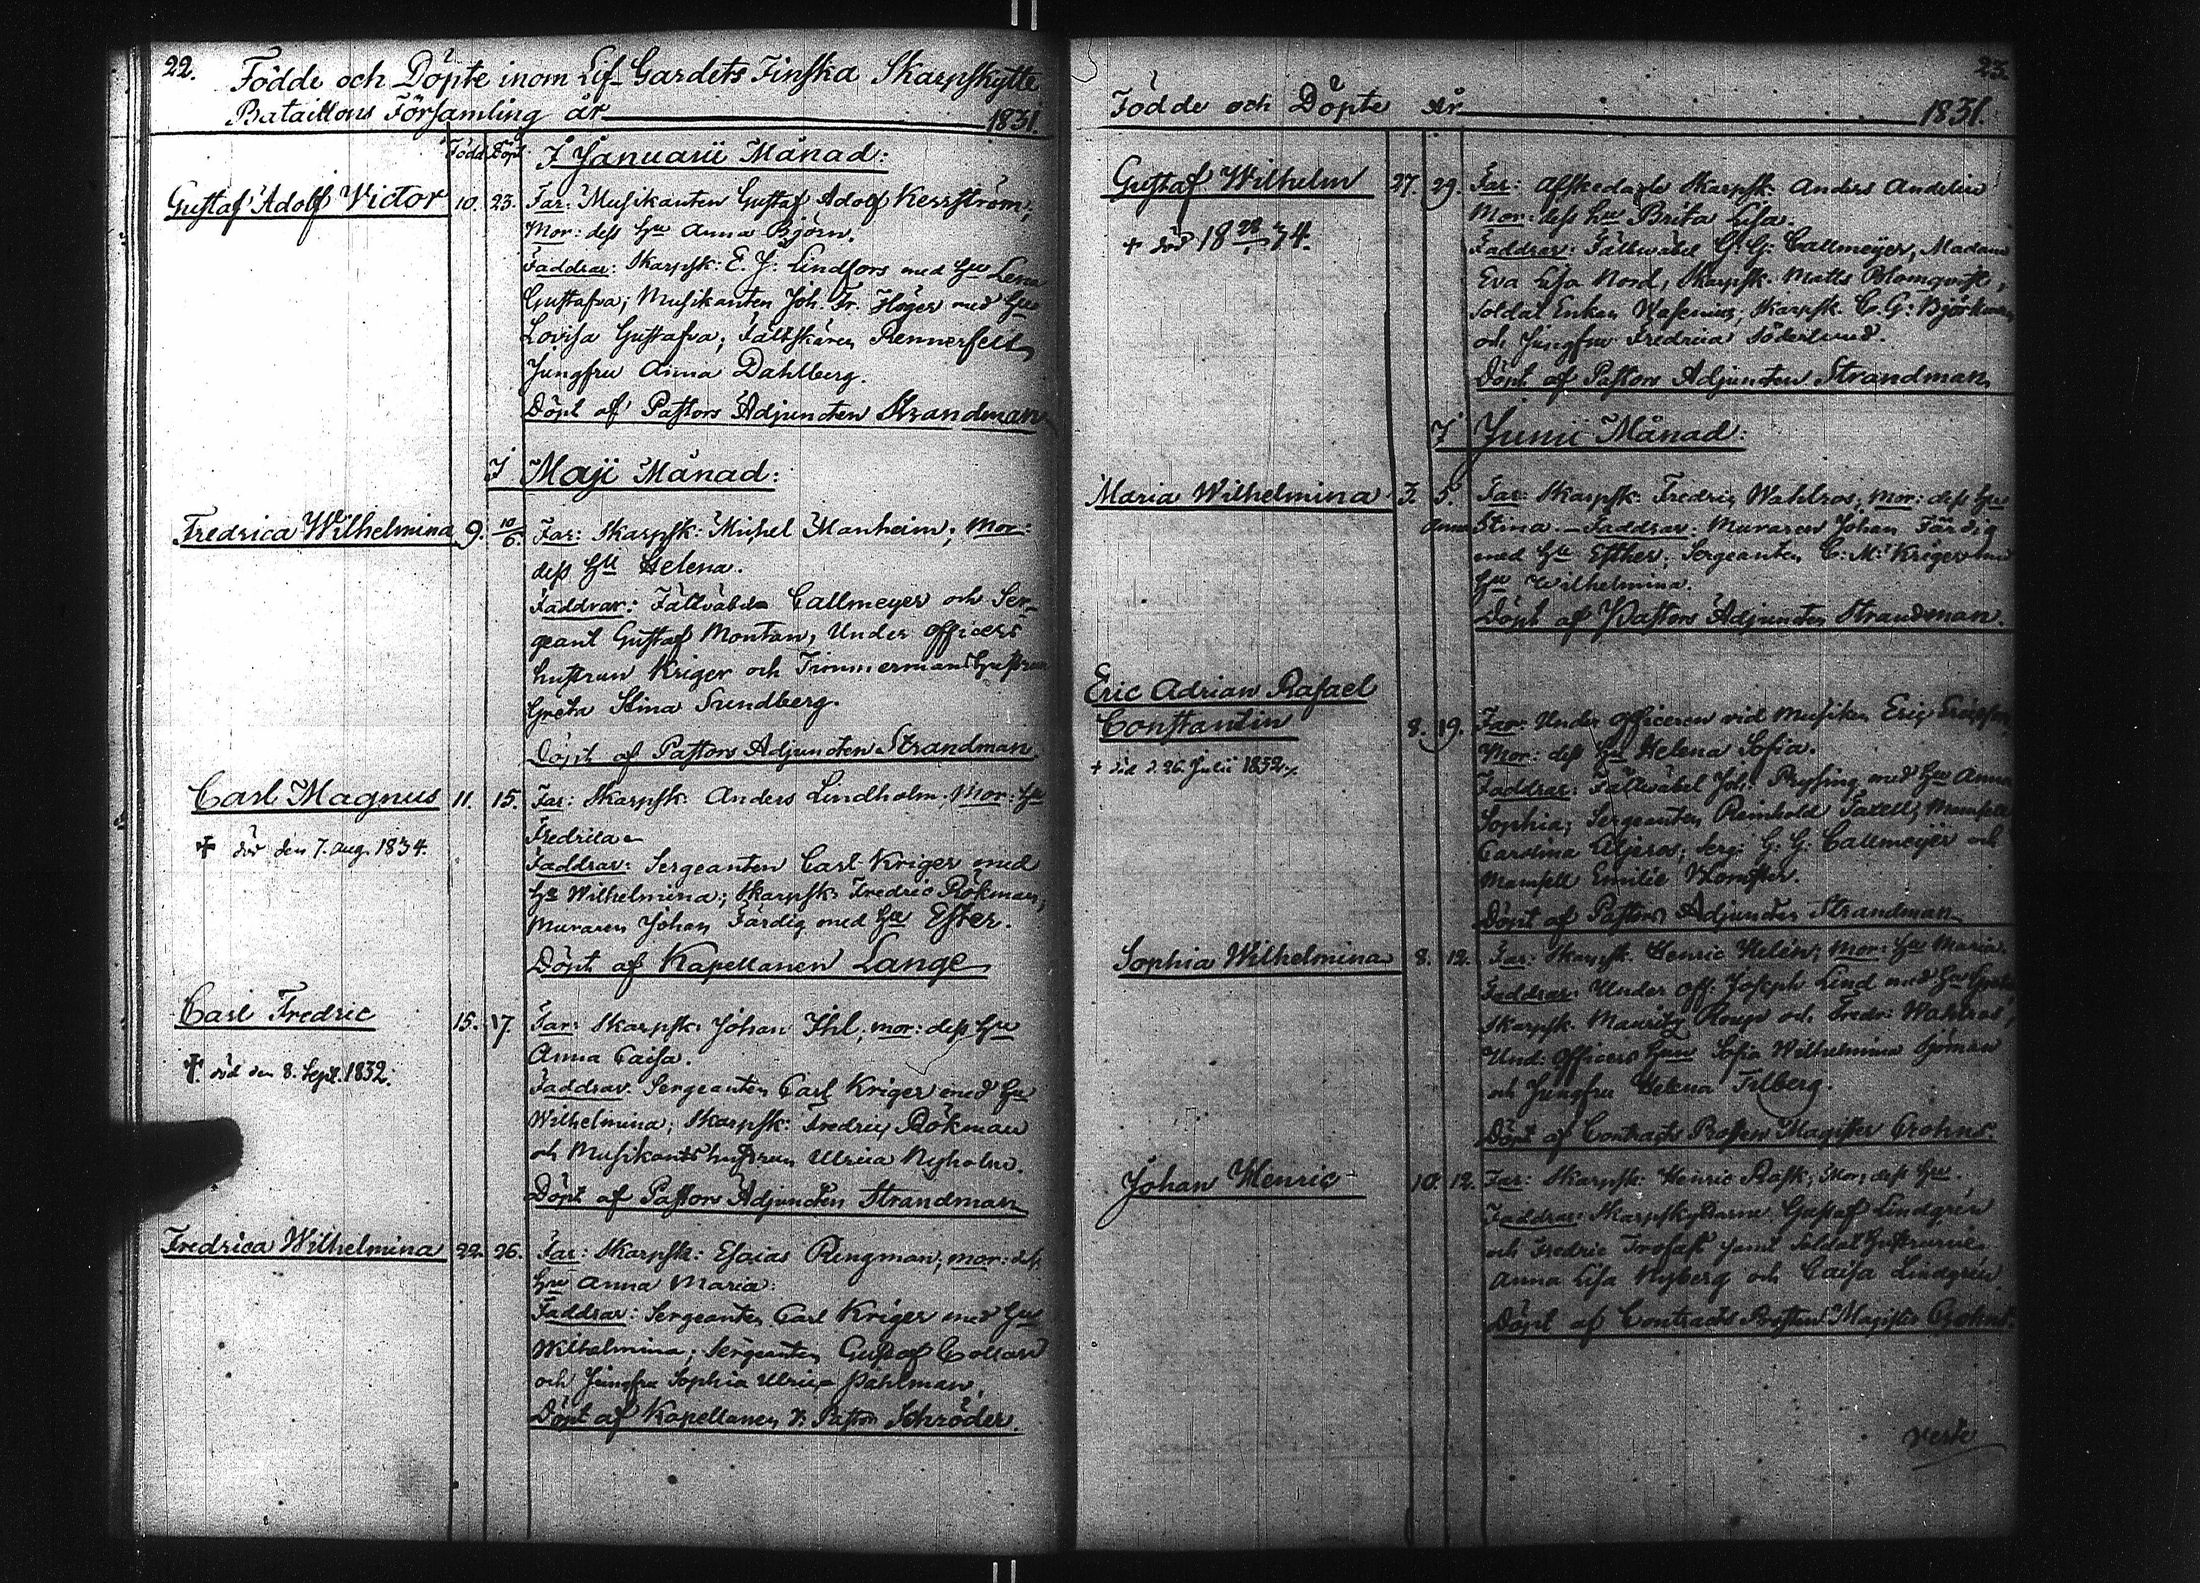 22.
Födde och Döpte inom Lif-Gardets Finska Skarpskytte
Bataillons Församling år 1831.
Född Döpt I Januarii Månad:
Gustaf Adolf Victor 10. 23. Far: Musikanten Gustaf Adolf Kesström;
Mor: dess Hu Anna Björn.
Faddrar: Skarpsk: E. J: Lindfors med Hu Lena
Gustafva; Musikanten Joh. Fr. Höger med Hu
Lovisa Gustafva; Fältskären Rennerfelt,
Jungfru Anna Dahlberg.
Döpt af Pastors Adjuncten Strandman
I Maji Månad:
Fredrica Wilhelmina 9. 10/6. Far: Skarpsk: Michel Manheim; Mor:
dess Hu Helena.
Faddrar: Fältväbeln Callmeyer och Ser-
geant Gustaf Montan, Under officers
hustrun Kriger och Timmermans Hustrun
Greta Stina Sundberg.
Döpt af Pastors Adjuncten Strandman
Carl Magnus 11. 15. Far: Skarpsk: Anders Lindholm. Mor: Hu
Fredrica
✝ död den 7. Aug. 1834.
Faddrar: Sergeanten Carl Kriger med
Hu Wilhelmina; Skarpsk: Fredric Rökman,
Muraren Johan Färdig med Hu Ester.
Döpt af Kapellanen Lange
Carl Fredric 15. 17. Far: Skarpsk: Johan Ihl; mor: dess Hu
Anna Caisa.
✝. död den 8. Sept. 1832.
Faddrar: Sergeanten Carl Kriger med Hu
Wilhelmina; Skarpsk: Fredric Rökman
och Musikants hustrun Ulrica Nyholm.
Döpt af Pastors Adjuncten Strandman
Fredrica Wilhelmina 22. 26. Far: Skarpsk: Esaias Ringman; mor: dess
Hu Anna Maria.
Faddrar: Sergeanten Carl Kriger med Hu
Wilhelmina; Sergeanten Gustaf Collan
och Jungfru Sophia Ulrica Påhlman.
Döpt af Kapellanen V. Pastor Schröder.
23.
Födde och Döpte År 1831.
Gustaf Wilhelm 27. 29. Far: Afskedade Skarpsk: Anders Andelin
Mor: dess hu Brita Lisa.
+ död 18 34.
Faddrar: Fältwäbel G. G: Callmeyer, Madame
Eva Lisa Nord, Skarpsk. Matts Blomqvist,
Soldat Enkan Wasenius, Skarpsk. C. G: Björkman
och Jungfru Fredrica Söderlund.
Döpt af Pastors Adjuncten Strandman
I Junii Månad:
Maria Wilhelmina 3. 5. Far: Skarpsk: Fredric Wahlros; mor: dess Hu
Anna Stina. – Faddrar: Muraren Johan Färdig
med Hu Esther; Sergeanten C: M: Kriger med
Hu Wilhelmina.
Döpt af Pastors Adjuncten Strandman.
Eric Adrian Rafael
Constantin 8. 19. Far: Under officeren vid Musiken Eric
Mor: dess Hu Helena Sofia.
+ död d. 26. Julii 1832.
Faddrar: Fältväbel Joh: med Hu Anna
Sophia; Sergeanten Reinhold Taxell, Mamsell
Carolina; Serg: G. G: Callmeyer och
Mamsell Emilie
Döpt af Pastors Adjuncten Strandman
Sophia Wilhelmina 8. 12. Far: Skarpsk. Henric Helén; mor: Hu Maria.
Faddrar: Under off: Joseph Lind med Hu Greta
Skarpsk. Mauritz och Fredr: Wahlros,
Und: officers Hun Sofia Wilhelmina Sjöman
och Jungfru Helena Filberg.
Döpt af Contracts Prosten Magister Crohns.
Johan Henric 10. 12. Far: Skarpsk: Henric Rask; Mor, dess Hu.
Faddrar: Skarpskyttarne Gustaf Lindgrén
och Fredric Trofast samt Soldat Hustrurne
Anna Lisa Nyberg och Caisa Lindgrén
Döpt af Contracts Prosten Magister Crohns.
verte